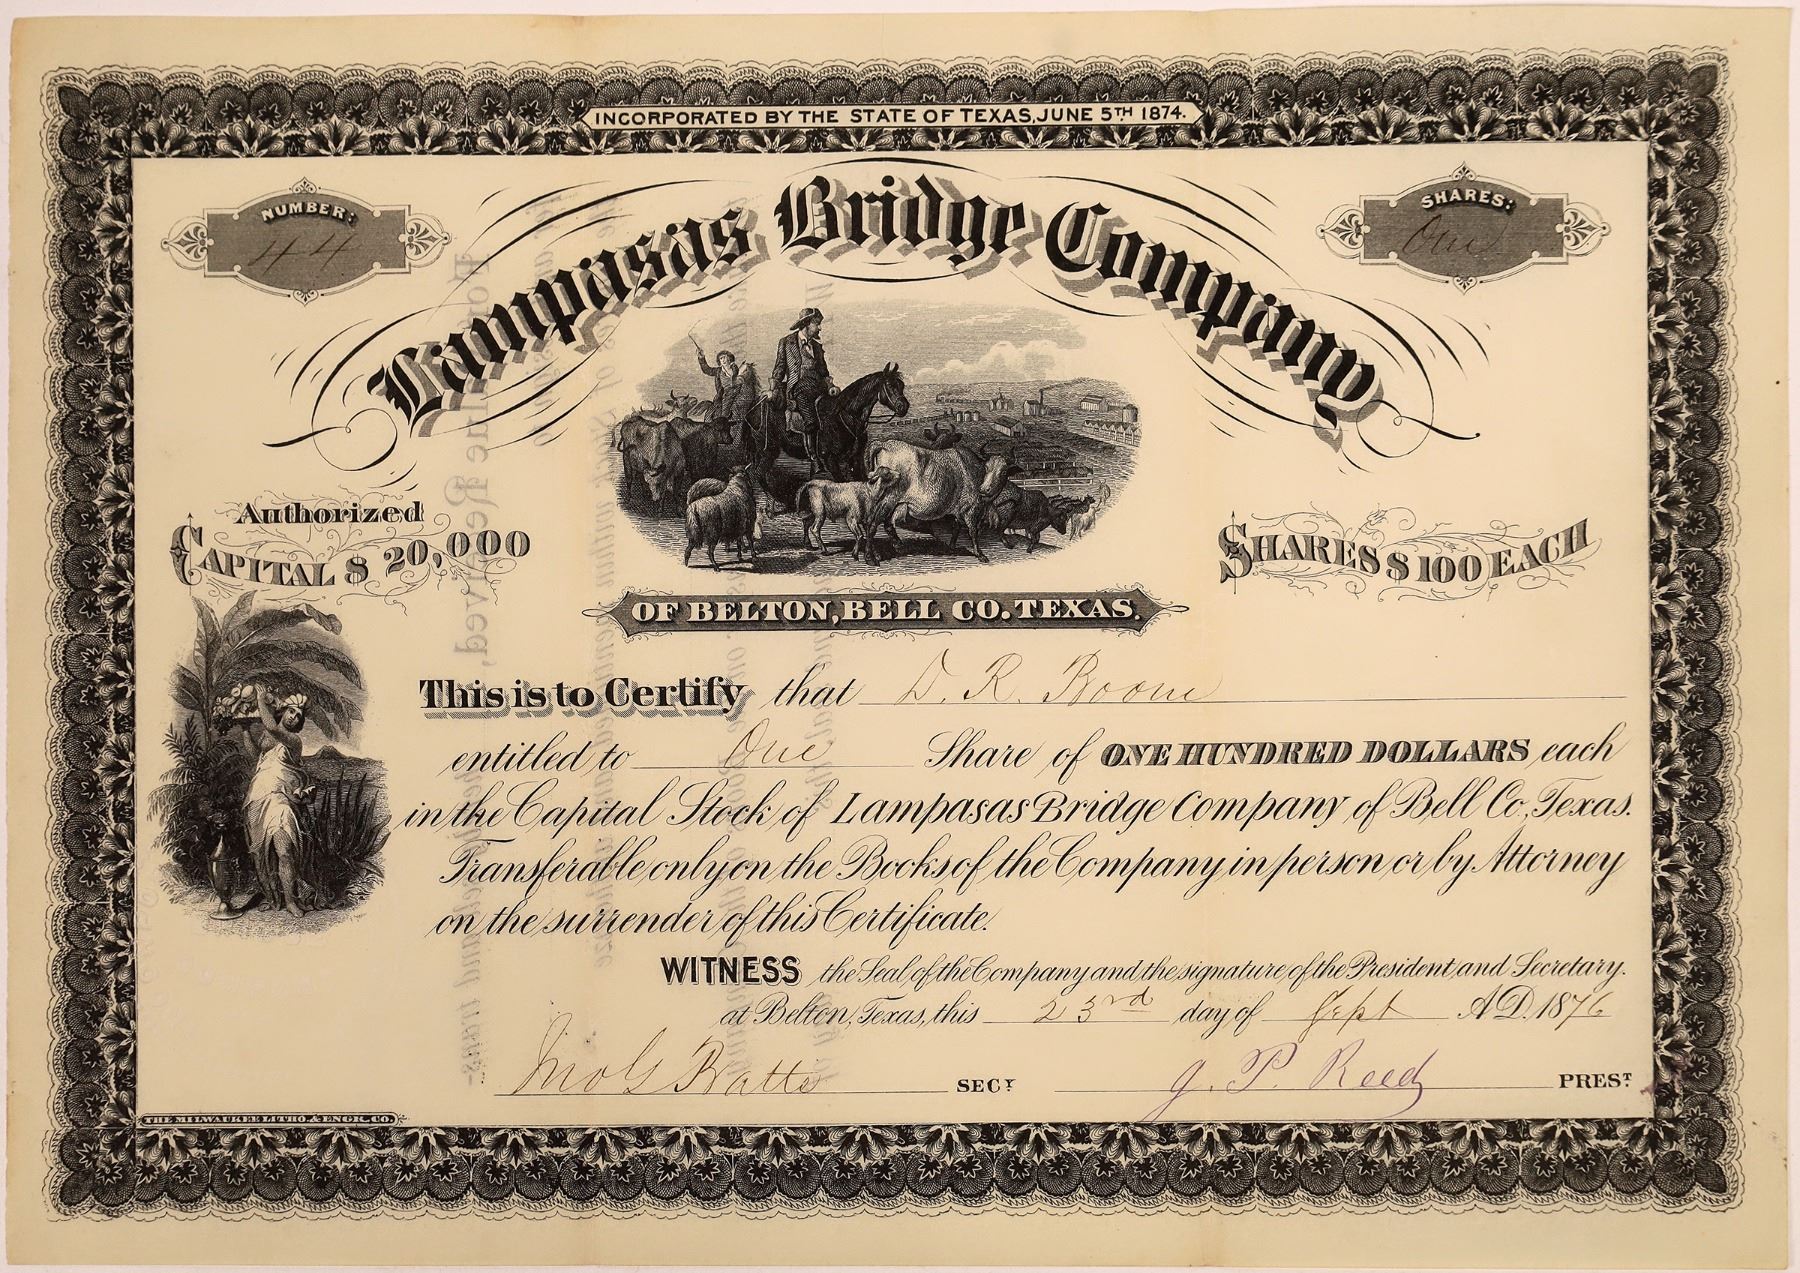 INCORPORATED BY THE STATE OF TEXAS, JUNE 5TH 1874.
NUMBER:
44
SHARES:
One
Lampasas Bridge Company
Authorized
CAPITAL $ 20,000
SHARES $ 100 EACH
OF BELTON, BELL CO. TEXAS.
This is to Certify that D. R. Boone
entitled to One Share of ONE HUNDRED DOLLARS each
in the Capital Stock of Lampasas Bridge Company of Bell Co, Texas.
Transferable only on the Books of the Company in person or by Attorney
on the surrender of this Certificate.
WITNESS the Seal of the Company and the signature of the President and Secretary.
at Belton, Texas, this 23rd day of Sept A.D. 1876
SECY
J. P. Reed PREST
THE MILWAUKEE LITHO & ENGR. CO.
For Value Received,